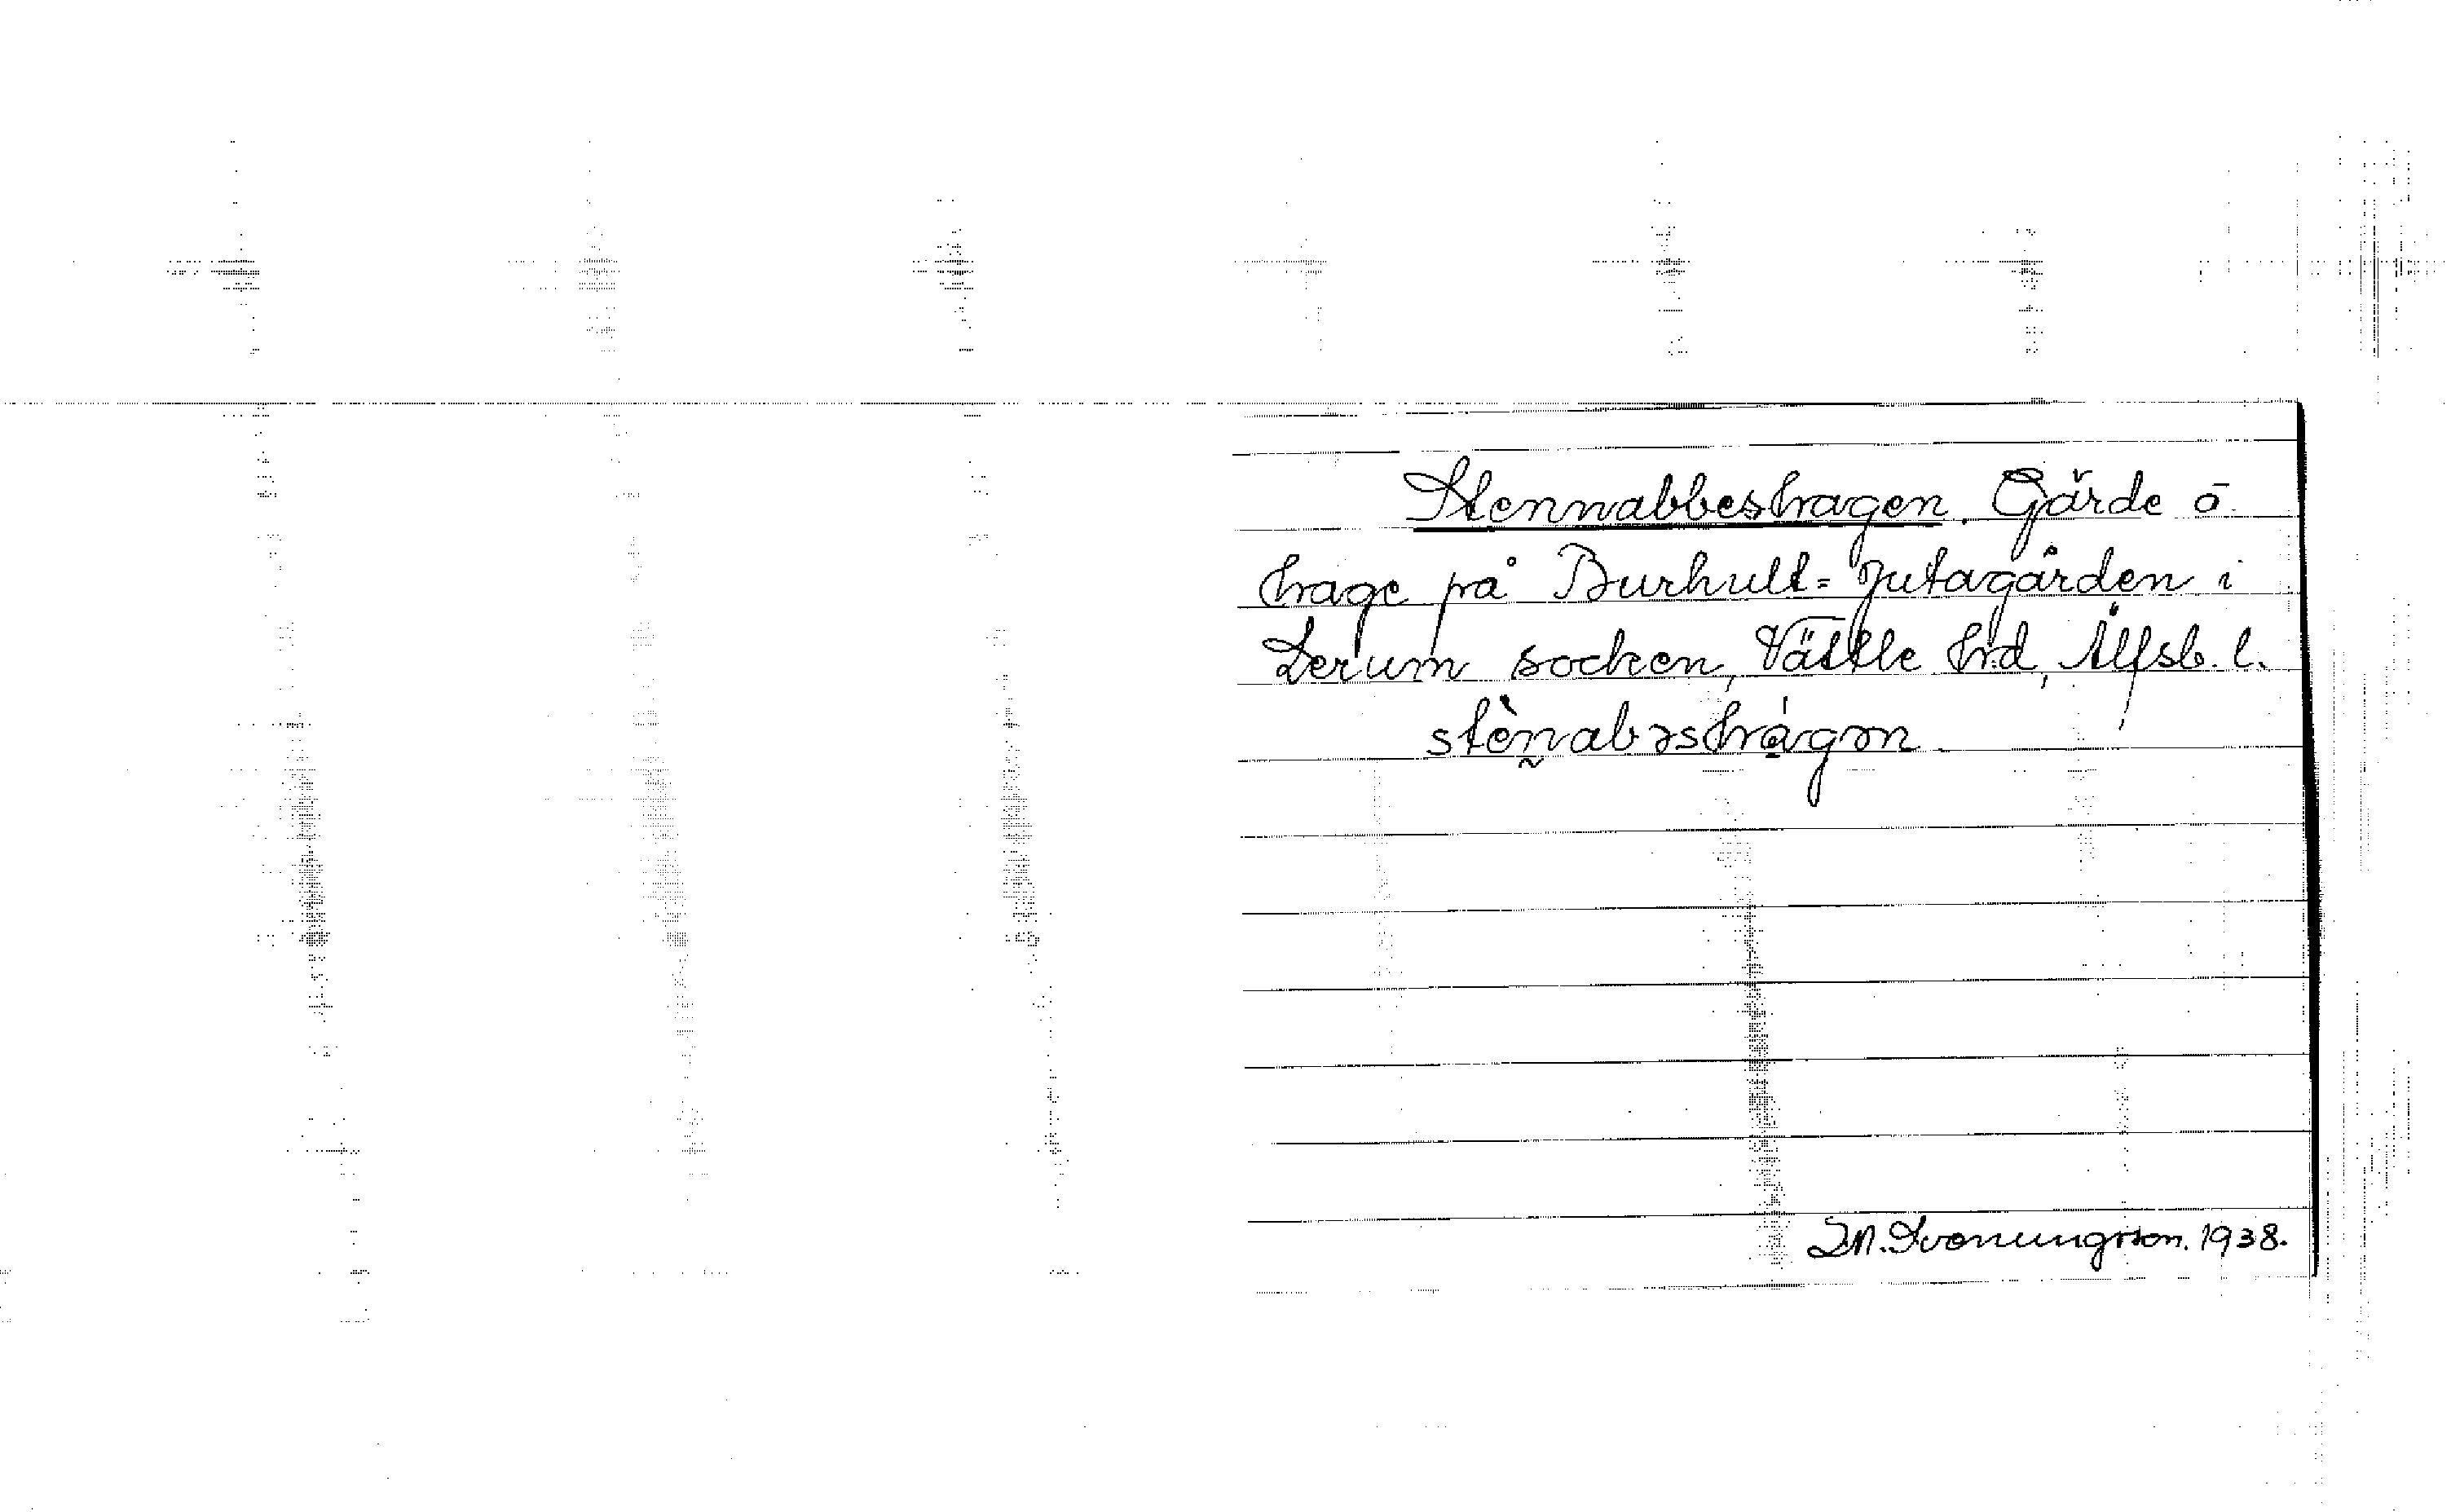 Stennabbeshagen. Gärde o
hage på Burhult=Jutagården i
Lerum socken, Vättle hrd, Älfsb. l.
stènabəshágən
D.N. Svenungsson. 1938.